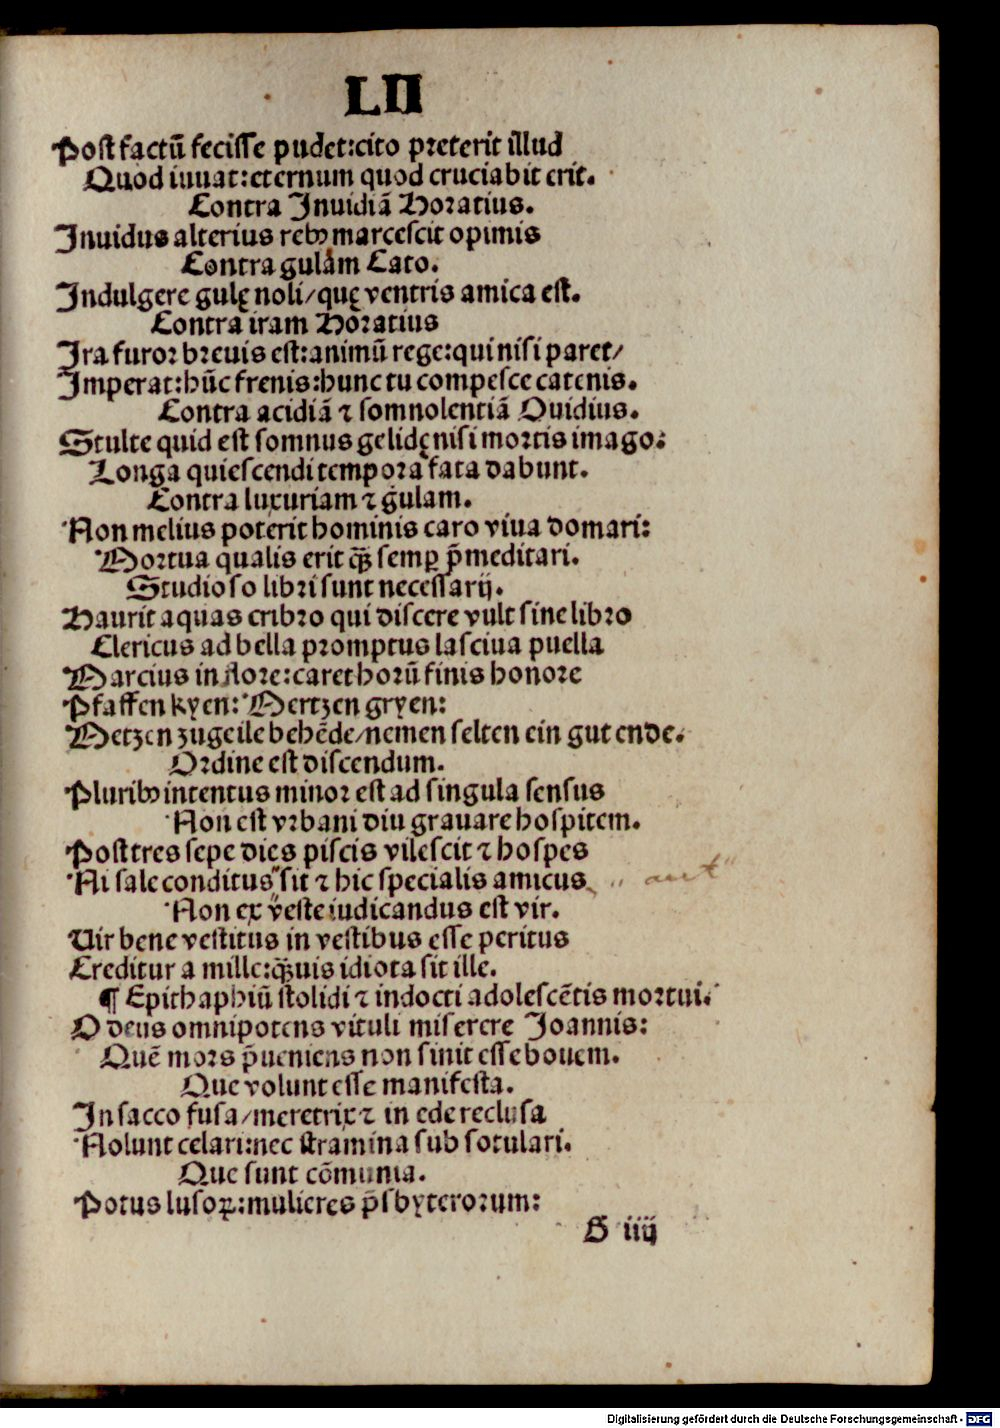 LII
Post factũ fecisse pudet:cito preterit illud
Quod iuuat:eternum quod cruciabit erit.
Contra Inuidiã Horatius.
Inuidus alterius rebꝰ marcescit opimis
Contra gulam Cato.
Indulgere gulę noli/quę ventris amica est.
Contra iram Horatius
Ira furor breuis est:animũ rege:qui nisi paret/
Imperat:hũc frenis:hunc tu compesce catenis.
Contra acidiã ⁊ somnolentiã Ouidius.
Stulte quid est somnus gelidę nisi mortis imago:
Longa quiescendi tempora fata dabunt.
Contra luxuriam ⁊ gulam.
Non melius poterit hominis caro viua domari:
Mortua qualis erit q̃ꝫ semꝑ p̃meditari.
Studioso libri sunt necessarij.
Haurit aquas cribro qui discere vult sine libro
Clericus ad bella promptus lasciua puella
Marcius in flore:caret horũ finis honore
Pfaffen kyen: Mertzen gryen:
Metzen zugeile behẽde/nemen selten ein gut ende.
Ordine est discendum.
Pluribꝰ intentus minor est ad singula sensus
Non est vrbani diu grauare hospitem.
Post tres sepe dies piscis vilescit ⁊ hospes
Ni sale conditus" sit ⁊ hic specialis amicus " aut "
Non ex veste iudicandus est vir.
Uir bene vestitus in vestibus esse peritus
Creditur a mille:q̃ꝫuis idiota sit ille.
¶ Epithaphiũ stolidi ⁊ indocti adolescẽtis mortui.
O deus omnipotens vituli miserere Joannis:
Quẽ mors p̃ueniens non sinit esse bouem.
Que volunt esse manifesta.
In sacco fusa/meretrix ⁊ in ede reclusa
Nolunt celari:nec stramina sub sotulari.
Que sunt cõmunia.
Potus lusoꝝ:mulieres p̃sbyterorum:
H iiij
Digitalisierung gefördert durch die Deutsche Forschungsgemeinschaft - DFG